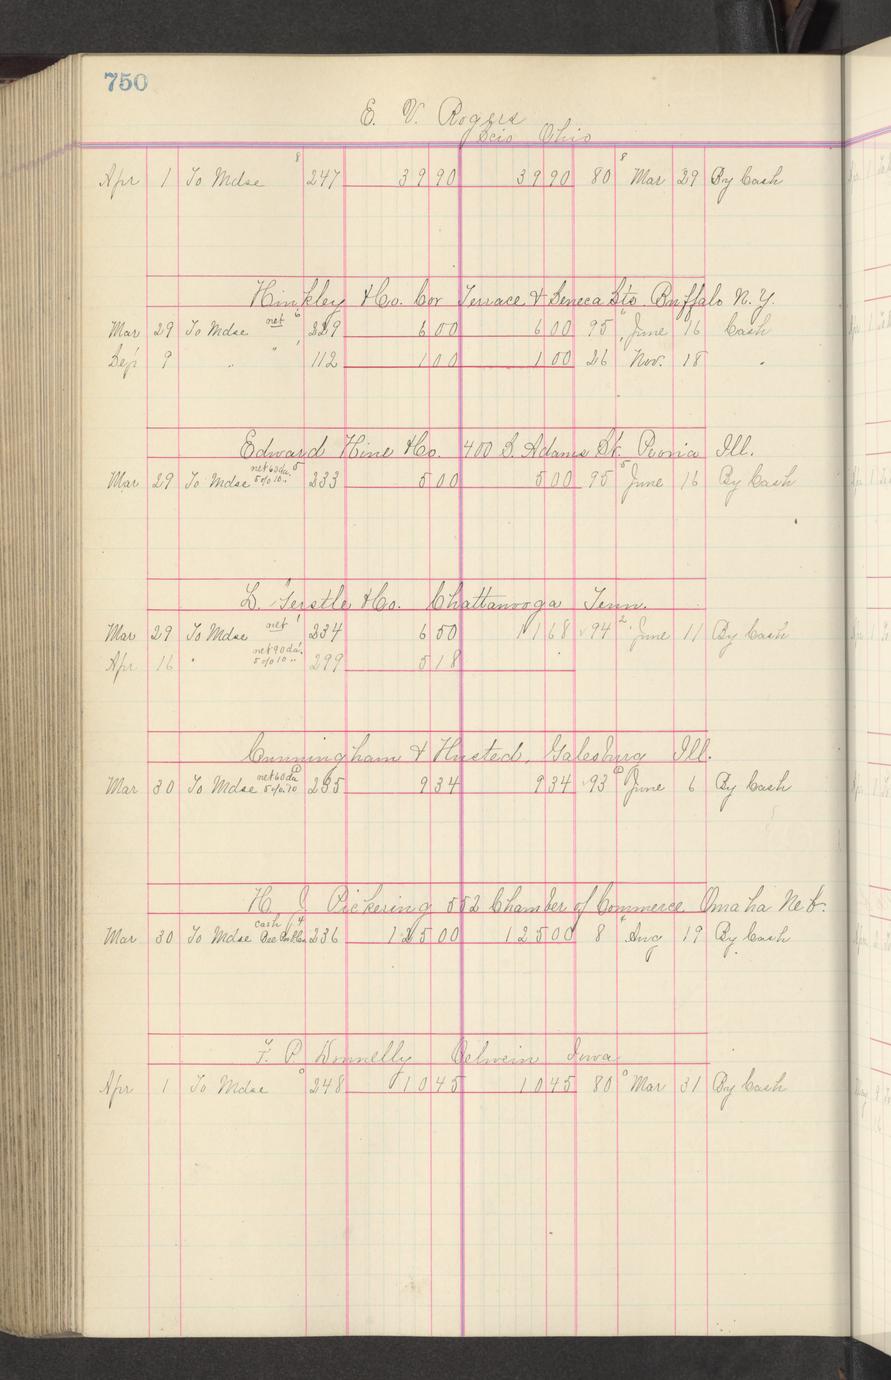 750
E. V. Rogers
Scio Ohio
Apr 1 To Mdse 8 247 39 90 39 90 80 8 Mar 29 By Cash
Hinkley & Co. Cor Terrace & Seneca Sts. Buffalo N. Y.
Mar 29 To Mdse net 6 229 6 00 6 00 95 6 June 16 Cash
Sep 9 " " 112 1 00 1 00 26 Nov. 18 "
Edward Hine & Co. 400 S. Adams St. Peoria Ill.
Mar 29 To Mdse net 60 da. 5 % 10 " 5 233 5 00 5 00 95 5 June 16 By Cash
D. Gerstle & Co. Chattanooga Tenn.
Mar 29 To Mdse net 1 234 6 50 11 68 94 2 June 11 By Cash
Apr 16 " net 90 da. 5 % 10 " 299 5 18
Cunningham & Husted, Galesburg Ill.
Mar 30 To Mdse net 60 da 5 % 10 235 9 34 9 34 93 June 6 By Cash
H J Pickering 552 Chamber of Commerce Omaha Neb.
Mar 30 To Mdse cash 4 236 125 00 125 00 8 4 Aug 19 By Cash
F. P. Donnelly Oelwein Iowa
Apr 1 To Mdse 0 248 10 45 10 45 80 0 Mar 31 By Cash